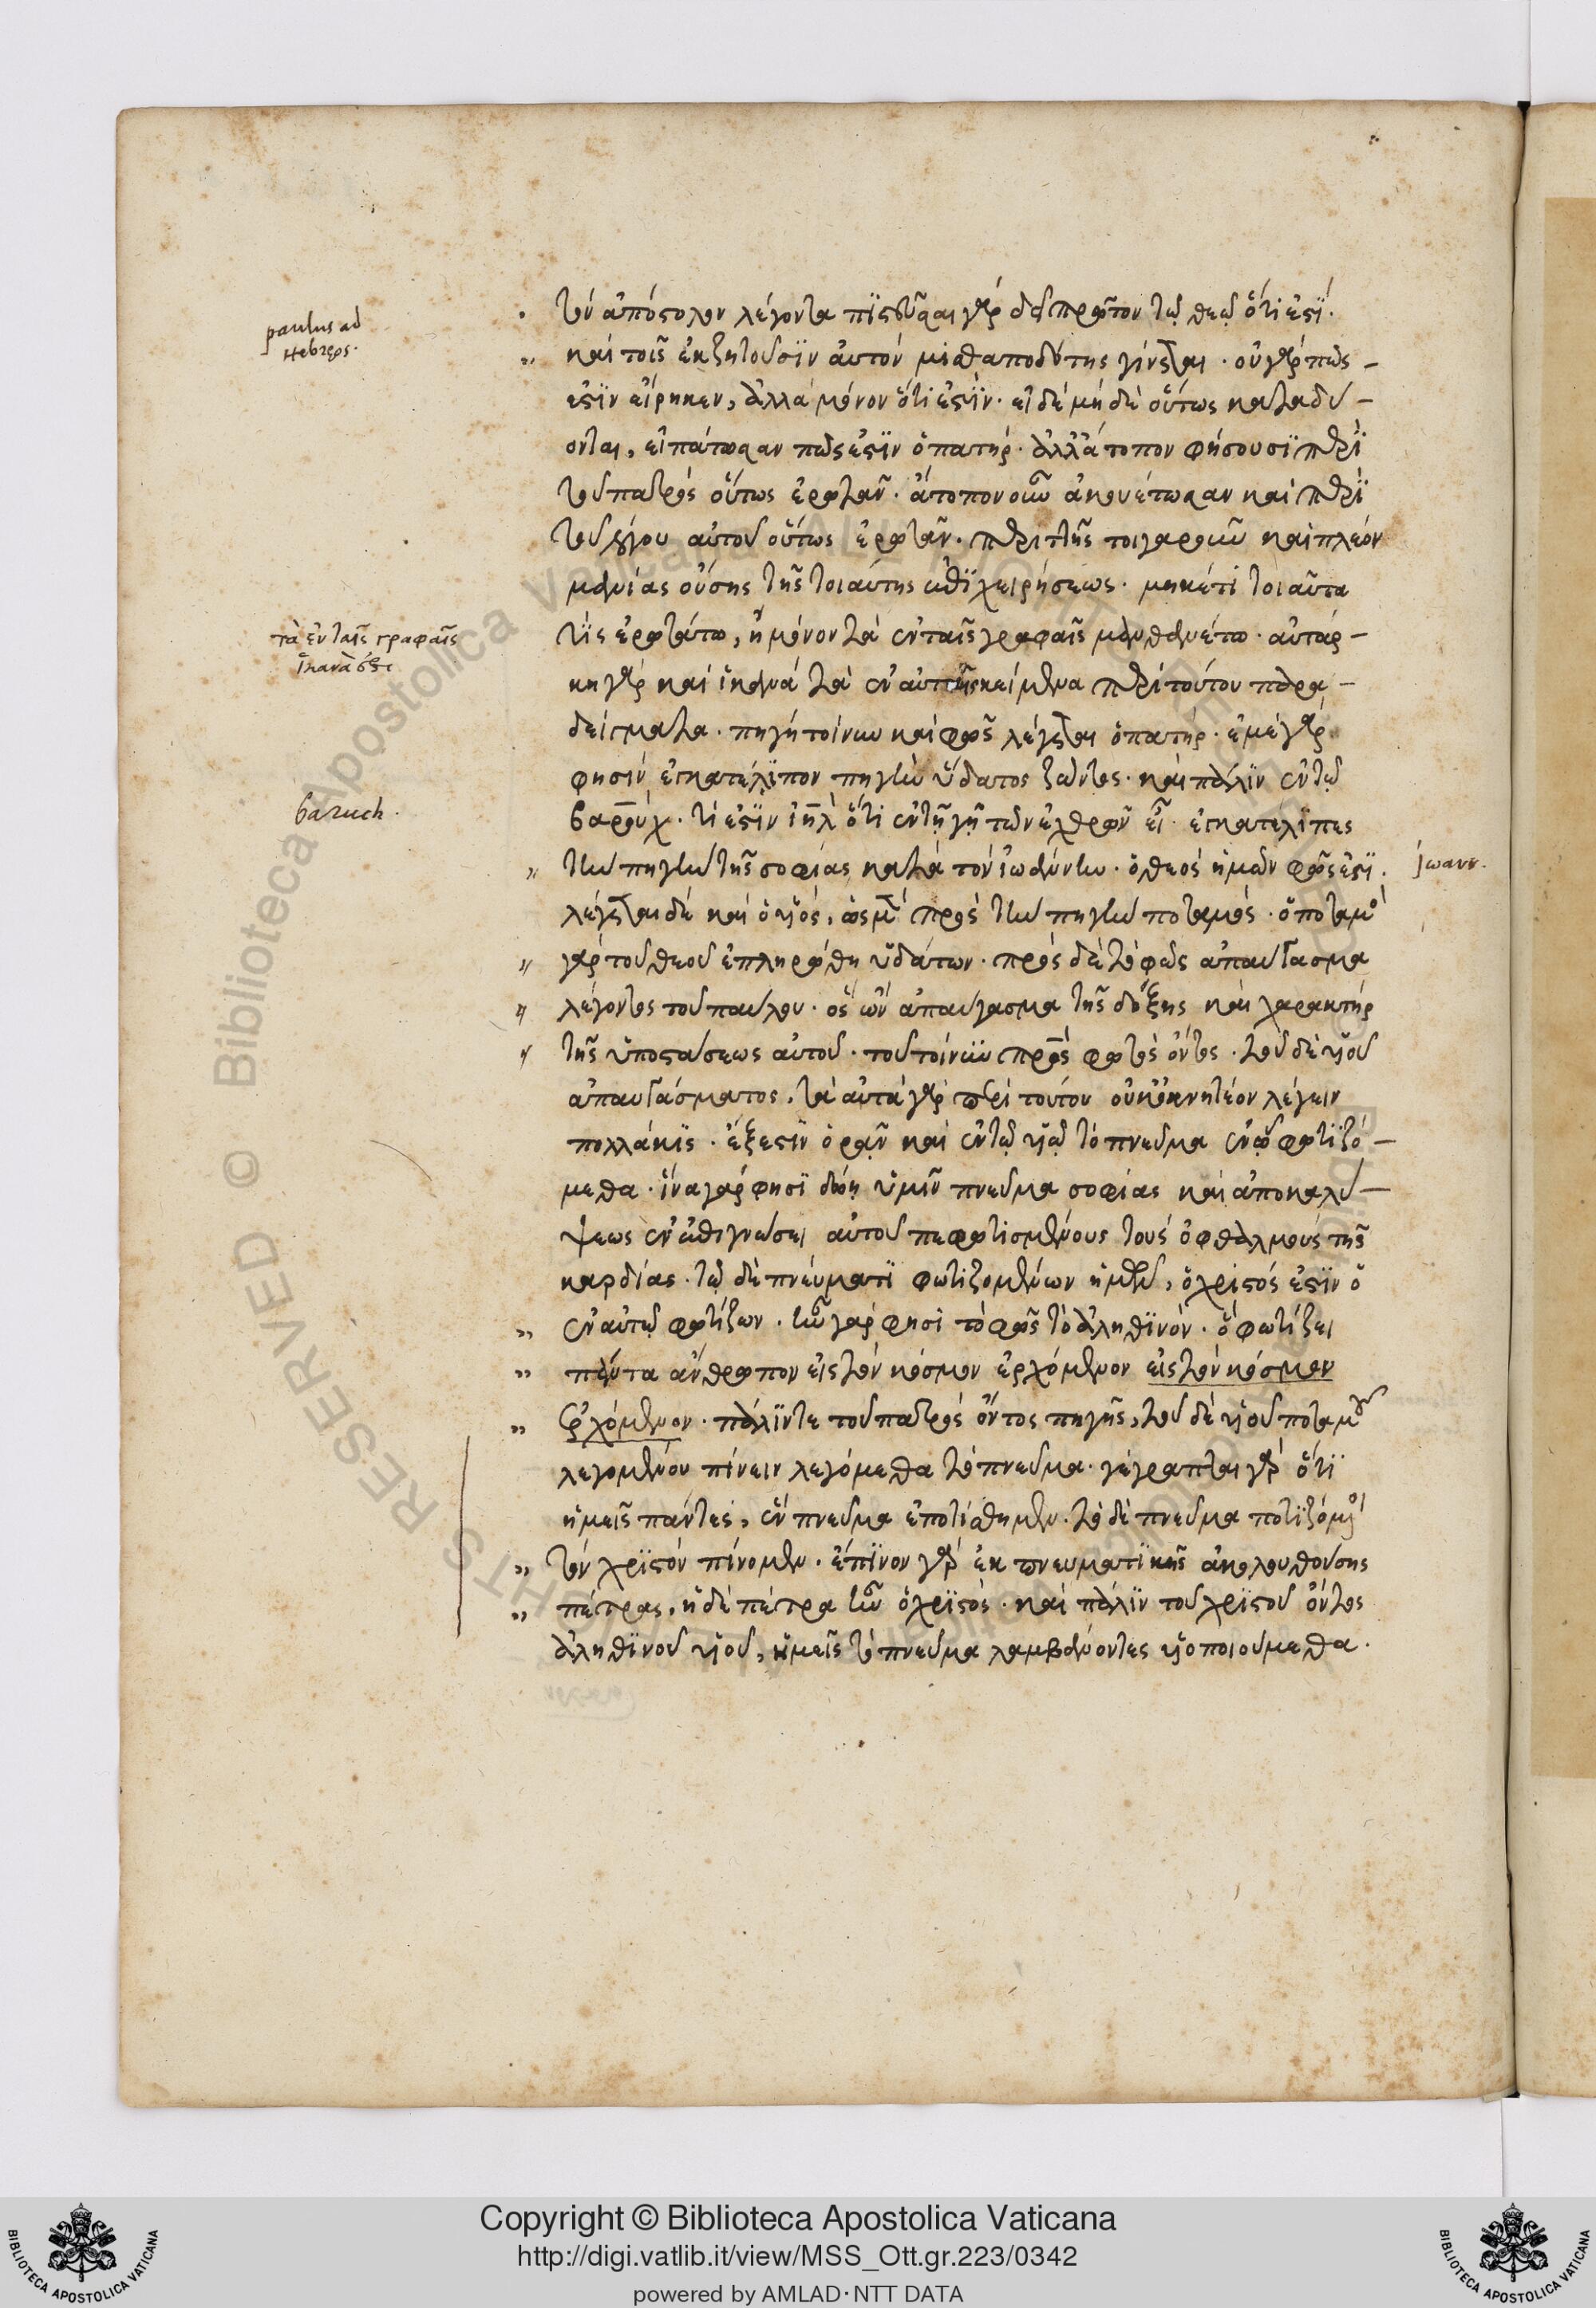 paulus ad
Hebreos.
τὸν ἀπόστολον λέγοντα πϊστεῦσαι γὰρ δεῖ πρῶτον τῶ θεῶ ὅτι ἐστϊ.
καὶ τοῖς ἐκζητοῦσϊν αὐτὸν μισθαποδότης γίνεται. οὐ γὰρ πῶς
ἐστϊν εἴρηκεν, ἀλλὰ μόνον ὅτι ἐστϊν. εἰ δὲ μὴ δὲ οὕτως καταδύ-
ονται, εἰπάτωσαν πῶς ἐστϊν ὁ πατήρ. ἀλλ' ἄτοπον φήσουσϊ περὶ
τοῦ πατρὸς οὕτως ἐρωτᾶν. ἄτοπον οὖν ἀκουέτωσαν καὶ περὶ
τοῦ λόγου αὐτοῦ οὕτως ἐρωτᾶν. περὶ τῆς τοιγαροῦν καὶ πλέον
μανίας οὔσης τῆς τοιαύτης ἐπϊχειρήσεως. μηκέτι τοιαῦτα
τὰ ἐν ταῖς γραφαῖς
ἱκανὰ ἐστι
τϊς ἐρωτάτω, ἢ μόνον τὰ ἐν ταῖς γραφαῖς μανθανέτω. αὐτάρ-
κη γὰρ καὶ ἱκανὰ τὰ ἐν αὐταῖς κείμενα περὶ τούτου παρα-
δείγματα. πηγὴ τοίνυν καὶ φῶς λέγεται ὁ πατήρ. ἐμὲ γάρ
φησιν ἐγκατέλϊπον πηγὴν ὕδατος ζῶντος. καὶ πάλϊν ἐν τῶ
baruch.
βαροὺχ. τί ἐστϊν ἰηλ ὅτι ἐν τῆ γῆ τῶν ἐχθρῶν εἶ. ἐγκατέλϊπες
τὴν πηγὴν τῆς σοφίας κατὰ τὸν ἰωάννην. ὁ θεὸς ἡμῶν φῶς ἐστϊ.
Joann.
λέγεται δὲ καὶ ὁ υἱός, ὡς μὲν πρὸς τὴν πηγὴν ποταμός. ὁ ποταμὸς
γὰρ τοῦ θεοῦ ἐπληρώθη ὑδάτων. πρὸς δὲ τὸ φῶς ἀπαύγασμα
λέγοντος τοῦ παύλου. ὃς ὢν ἀπαύγασμα τῆς δόξης καὶ χαρακτὴρ
τῆς ὑποστάσεως αὐτοῦ. τοῦ τοίνυν πρς φωτὸς ὄντος. τοῦ δὲ υἱοῦ
ἀπαυγάσματος, τὰ αὐτὰ γὰρ περὶ τούτου οὐκ ὀκνητέον λέγειν
πολλάκϊς. ἔξεστϊν ὁρᾶν καὶ ἐν τῶ υἱῶ τὸ πνεῦμα ἐν ὧ φωτϊζό-
μεθα. ἵνα γάρ φησϊ δώη ὑμῖν πνεῦμα σοφίας καὶ ἀποκαλύ-
ψεως ἐν ἐπιγνώσει αὐτοῦ πεφωτισμένους τοὺς ὀφθαλμοὺς τῆς
καρδίας. τῶ δὲ πνεύματϊ φωτιζομένων ἡμῶν, ὁ χριστός ἐστϊν ὁ
ἐν αὐτῶ φωτίζων. ἦν γάρ φησι τὸ φῶς τὸ ἀληθϊνὸν. ὃ φωτίζει
πάντα ἄνθρωπον εἰς τὸν κόσμον ἐρχόμενον εἰς τὸν κόσμον
ἐρχόμενον. πάλϊν τε τοῦ πατρὸς ὄντος πηγῆς, τοῦ δὲ υἱοῦ ποταμοῦ
λεγομένου πίνειν λεγόμεθα τὸ πνεῦμα. γέγραπται γὰρ ὅτϊ
ἡμεῖς πάντες, ἓν πνεῦμα ἐποτίσθημεν. τὸ δὲ πνεῦμα ποτϊζόμενοι
τὸν χρϊστὸν πίνομεν. ἔπϊνον γὰρ ἐκ πνευματϊκῆς ἀκολουθούσης
πέτρας, ἡ δὲ πέτρα ἦν ὁ χρϊστὸς. καὶ πάλϊν τοῦ χρϊστοῦ ὄντος
ἀληθϊνοῦ υἱοῦ, ἡμεῖς τὸ πνεῦμα λαμβάνοντες υἱοποιούμεθα.
Copyright © Biblioteca Apostolica Vaticana
http://digi.vatlib.it/view/MSS_Ott.gr.223/0342
powered by AMLAD·NTT DATA